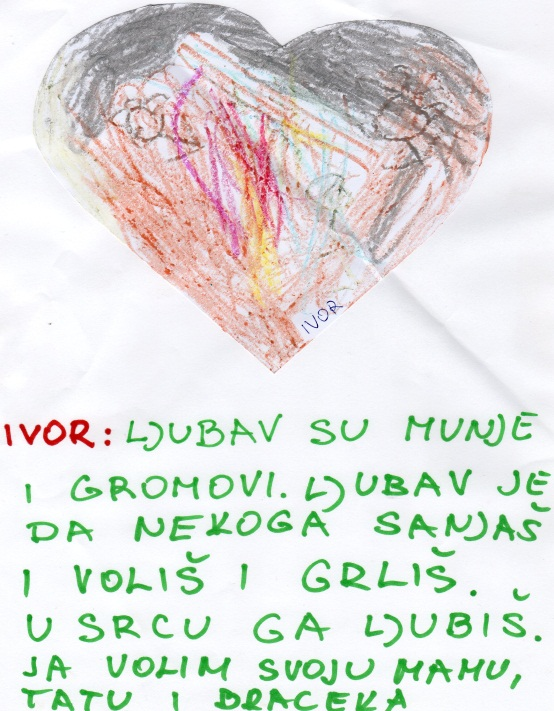 IVOR
IVOR: LJUBAV SU MUNJE
I GROMOVI. LJUBAV JE
DA NEKOGA SANJAŠ
I VOLIŠ I GRLIŠ.
U SRCU GA LJUBIŠ.
JA VOLIM SVOJU MAMU,
TATU I BRACEKA